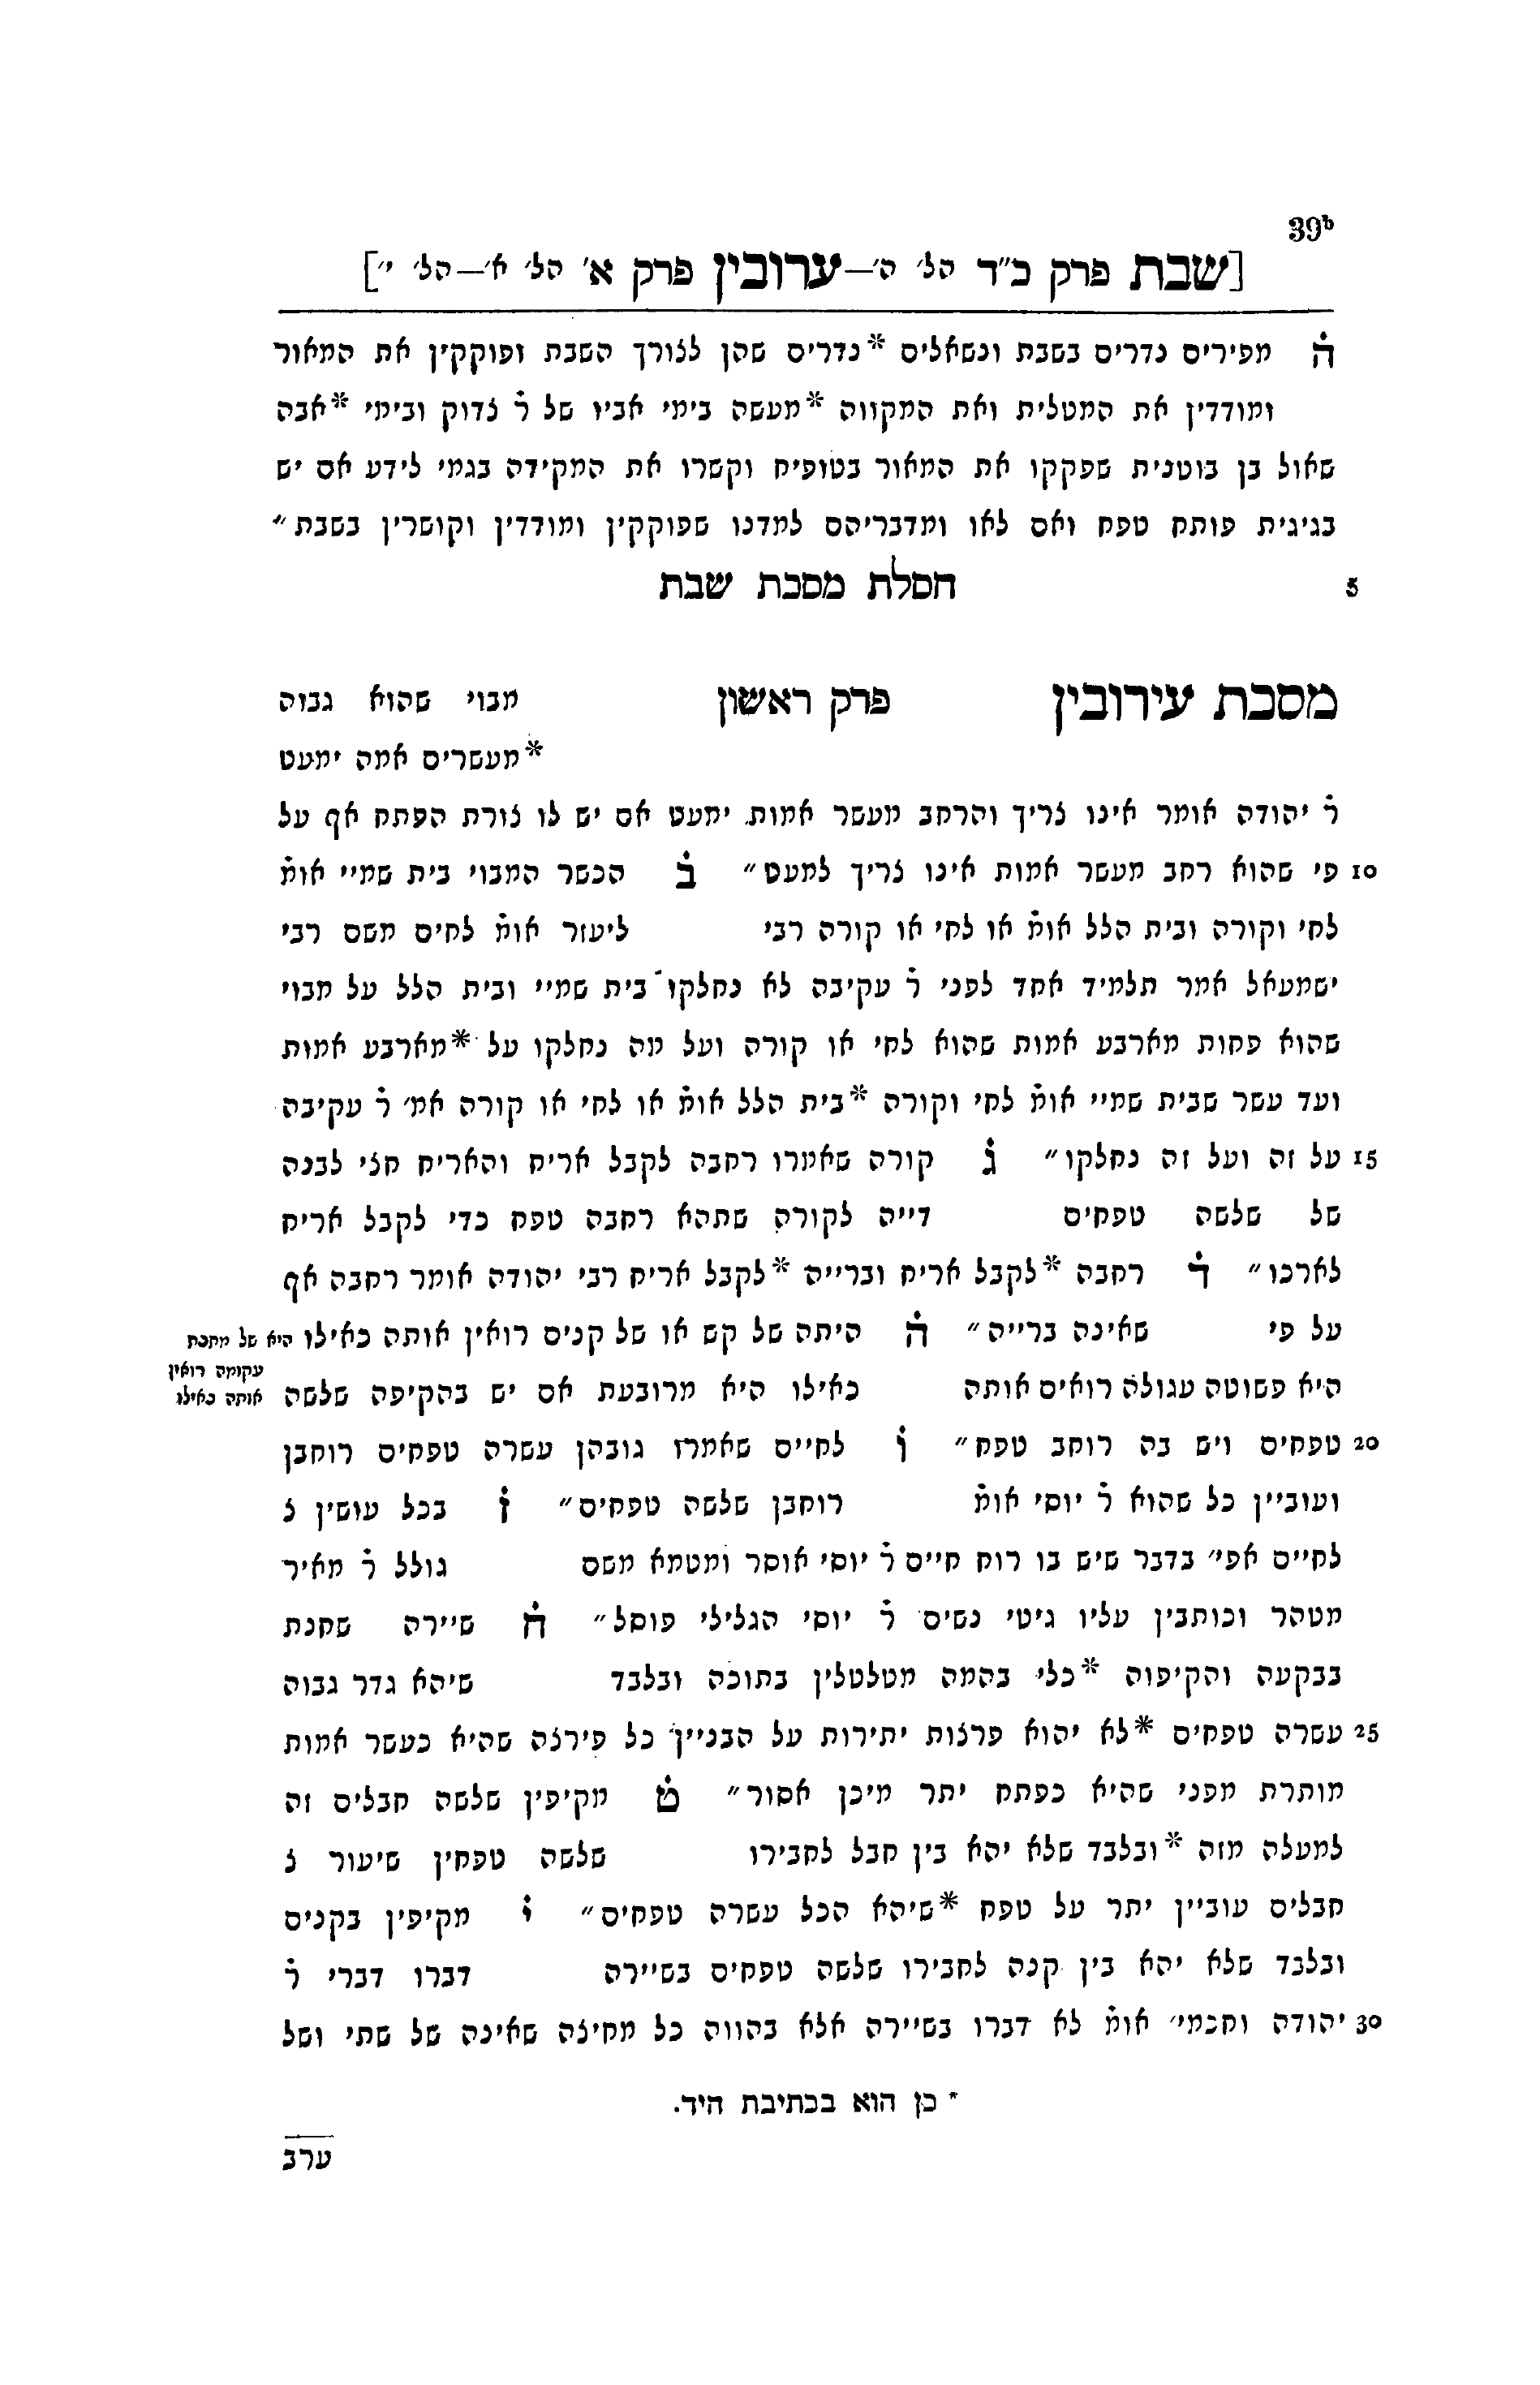 39b
[שבת פרק כ״ד הל׳ ה׳—ערובין פרק א׳ הל׳ א׳—הל׳ י׳]
ה̇ מפירים נדרים בשבת ונשאלים *נדרים שהן לצורך השבת ופוקקין את המאור
ומודדין את המטלית ואת המקווה *מעשה בימי אביו של ר̇ צדוק ובימי *אבה
שאול בן בוטנית שפקקו את המאור בטופיח וקשרו את המקידה בגמי לידע אם יש
בגיגית פותח טפח ואם לאו ומדבריהם למדנו שפוקקין ומודדין וקושרין בשבת״
5 חסלת מסכת שבת
מסכת עירובין פרק ראשון מבוי שהוא גבוה
*מעשרים אמה ימעט
ר̇ יהודה אומר אינו צריך והרחב מעשר אמות ימעט אם יש לו צורת הפתח אף על
10 פי שהוא רחב מעשר אמות אינו צריך למעט״ ב̇ הכשר המבוי בית שמיי אומ̇
לחי וקורה ובית הלל אומ̇ או לחי או קורה רבי ליעזר אומ̇ לחים משם רבי
ישמעאל אמר תלמיד אחד לפני ר̇ עקיבה לא נחלקו בית שמיי ובית הלל על מבוי
שהוא פחות מארבע אמות שהוא לחי או קורה ועל מה נחלקו על *מארבע אמות
ועד עשר שבית שמיי אומ̇ לחי וקורה *בית הלל אומ̇ או לחי או קורה אמ׳ ר̇ עקיבה
15 על זה ועל זה נחלקו״ ג̇ קורה שאמרו רחבה לקבל אריח והאריח חצי לבנה
של שלשה טפחים דייה לקורה שתהא רחבה טפח כדי לקבל אריח
לארכו״ ד̇ רחבה *לקבל אריח ובריייה *לקבל אריח רבי יהודה אומר רחבה אף
על פי שאינה ברייה״ ה̇ היתה של קש או של קנים רואין אותה כאילו היא של מתכת
עקומה רואין
היא פשוטה עגולה רואים אותה כאילו היא מרובעת אם יש בהקיפה שלשה אותה כאילו
20 טפחים ויש בה רוחב טפח״ ו̇ לחיים שאמרו גובהן עשרה טפחים רוחבן
ועוביין כל שהוא ר̇ יוסי אומ̇ רוחבן שלשה טפחים״ ז̇ בכל עושין ל
לחיים אפי״ בדבר שיש בו רוח חיים ר̇ יוסי אוסר ומטמא משם גולל ר̇ מאיר
מטהר וכותבין עליו גיטי נשים ר̇ יוסי הגלילי פוסל״ ח̇ שיירה שחנת
בבקעה והקיפוה *כלי בהמה מטלטלין בתוכה ובלבד שיהא גדר גבוה
25 עשרה טפחים *לא יהוא פרצות יתירות על הבניין כל פירצה שהיא כעשר אמות
מותרת מפני שהיא כפתח יתר מיכן אסור״ ט̇ מקיפין שלשה חבלים זה
למעלה מזה *ובלבד שלא יהא בין חבל לחבירו שלשה טפחין שיעור ל
חבלים עוביין יתר על טפח *שיהא הכל עשרה טפחים״ י̇ מקיפין בקנים
ובלבד שלא יהא בין קנה לחבירו שלשה טפחים בשיירה דברו דברי ר̇
30 יהודה וחכמי׳ אומ̇ לא דברו בשיירה אלא בהווה כל מחיצה שאינה של שתי ושל
* כן הוא בכתיבת היד.
ערב